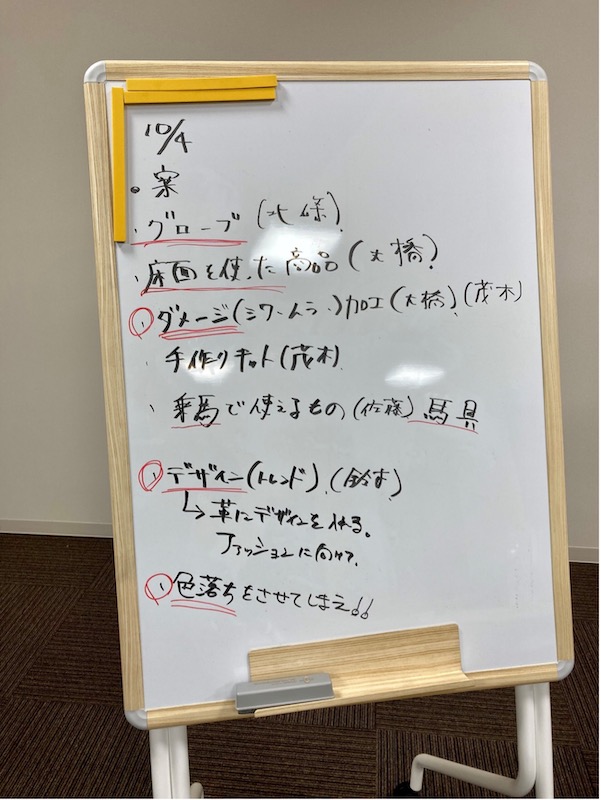 10/4
・案
・グローブ (北條)
・床面を使った商品 (大橋)
・ダメージ(シワ・ムラ・)加工 (大橋) (茂木)
・手作りキット(茂木)
・乗馬で使えるもの (佐藤) 馬具
・デザイン(トレンド) (鈴木)
↳革にデザインを作る。
ファッションに向けて
・色落ちをさせてしまえ!!